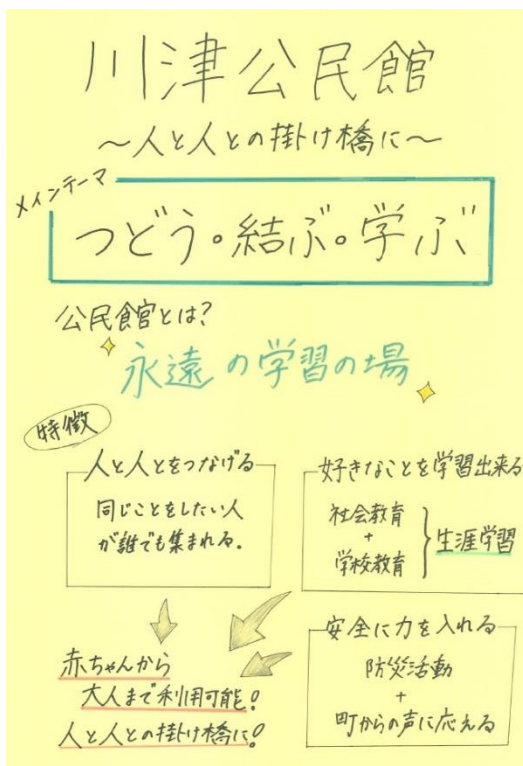 川津公民館
～人と人との掛け橋に～
メインテーマ
つどう。結ぶ。学ぶ
公民館とは?
永遠の学習の場
特徴
人と人とをつなげる
同じことをしたい人
が誰でも集まれる.
好きなことを学習出来る
社会教育
+
学校教育
生涯学習
安全に力を入れる
防災活動
+
町からの声に応える
赤ちゃんから
大人まで利用可能!
人と人との掛け橋に!